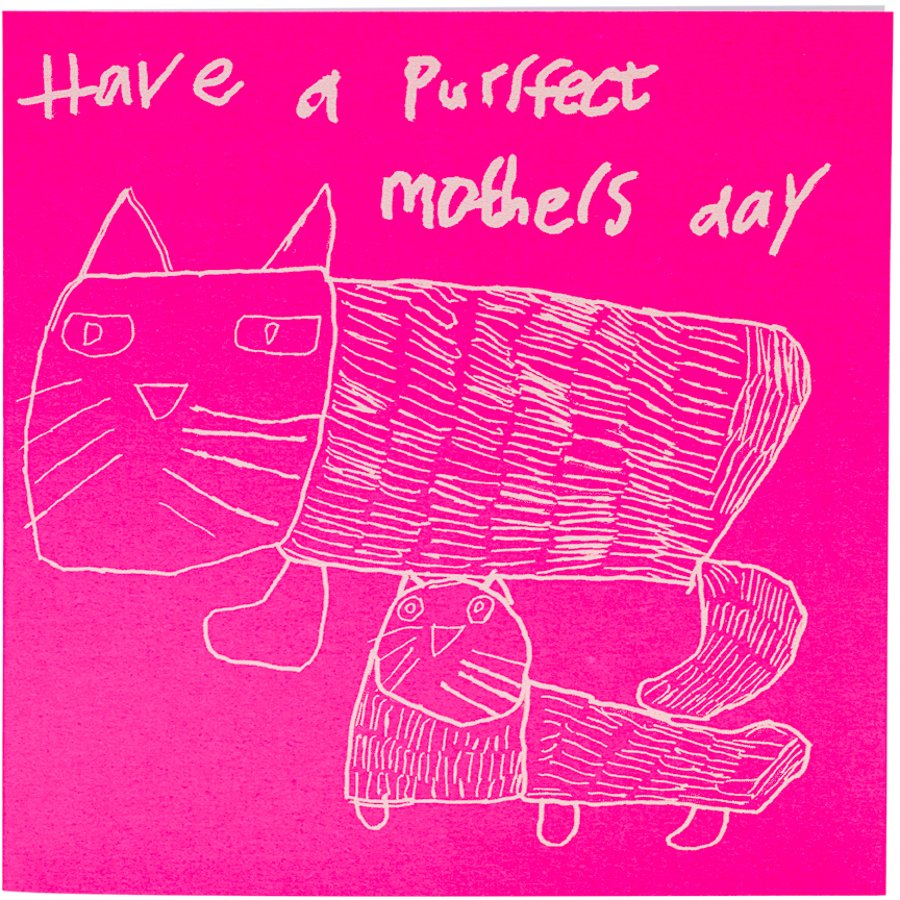 Have a Purrfect
mothers day